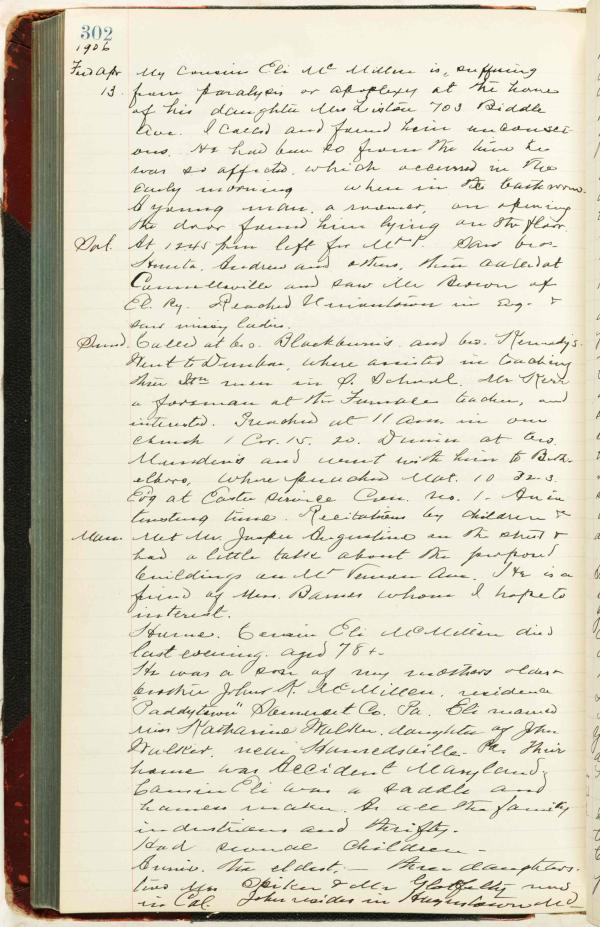 302
1906
Fri Apr My cousin Eli McMillen is suffering
13. from paralysis or apoplexy at the home
of his daughter Mrs Liston 703 Biddle
Ave. I called and found him unconsci-
ous. He had been so from the time he
was so affected, which occurred in the
early morning when in the bathroom.
A young man, a roomer, on opening
the door found him lying on the floor.
Sat. At 1245 pm left for Mt P. Saw bro
Andrew and others, then called at
Connellsville and saw Mr Brown of
El. Ry. Reached Uniontown in Evg. &
saw ladies.
Sund. Called at bro. Blackburn's and bro. Kennedy's.
Went to Dunbar, where assisted in teaching
three men in S. School. Mr. Kerr
a foreman at the Furnace teacher, and
interested. Preached at 11 am. in our
church 1 Cor. 15. 20. Dinner at bro.
and went with him to Beth-
elboro, where preached Mat. 10 32-3.
Evg at Easter service Cen. No. 1. An in
teresting time. Recitations by children &c
Mon. Met Mr. Jasper Augustine on the street &
had a little talk about the proposed
buildings on Mt Vernon Ave. He is a
friend of Mrs. Barnes whom I hope to
interest.
Home. Cousin Eli McMillen died
last evening. aged 78+.
He was a son of my mothers oldest
brother John K. McMillen, residence
"Paddytown" Somerset Co. Pa. Eli married
Miss Katharine Walker, daughter of John
Walker, near Pa. Their
home was Accident Maryland;
Cousin Eli was a saddle and
harness maker. As all the family
industrious and thrifty.
Had several children -
the eldest, - three daughters.
two Mrs & Mrs Glotfelty now
in Cal. John resides in Hagerstown Md